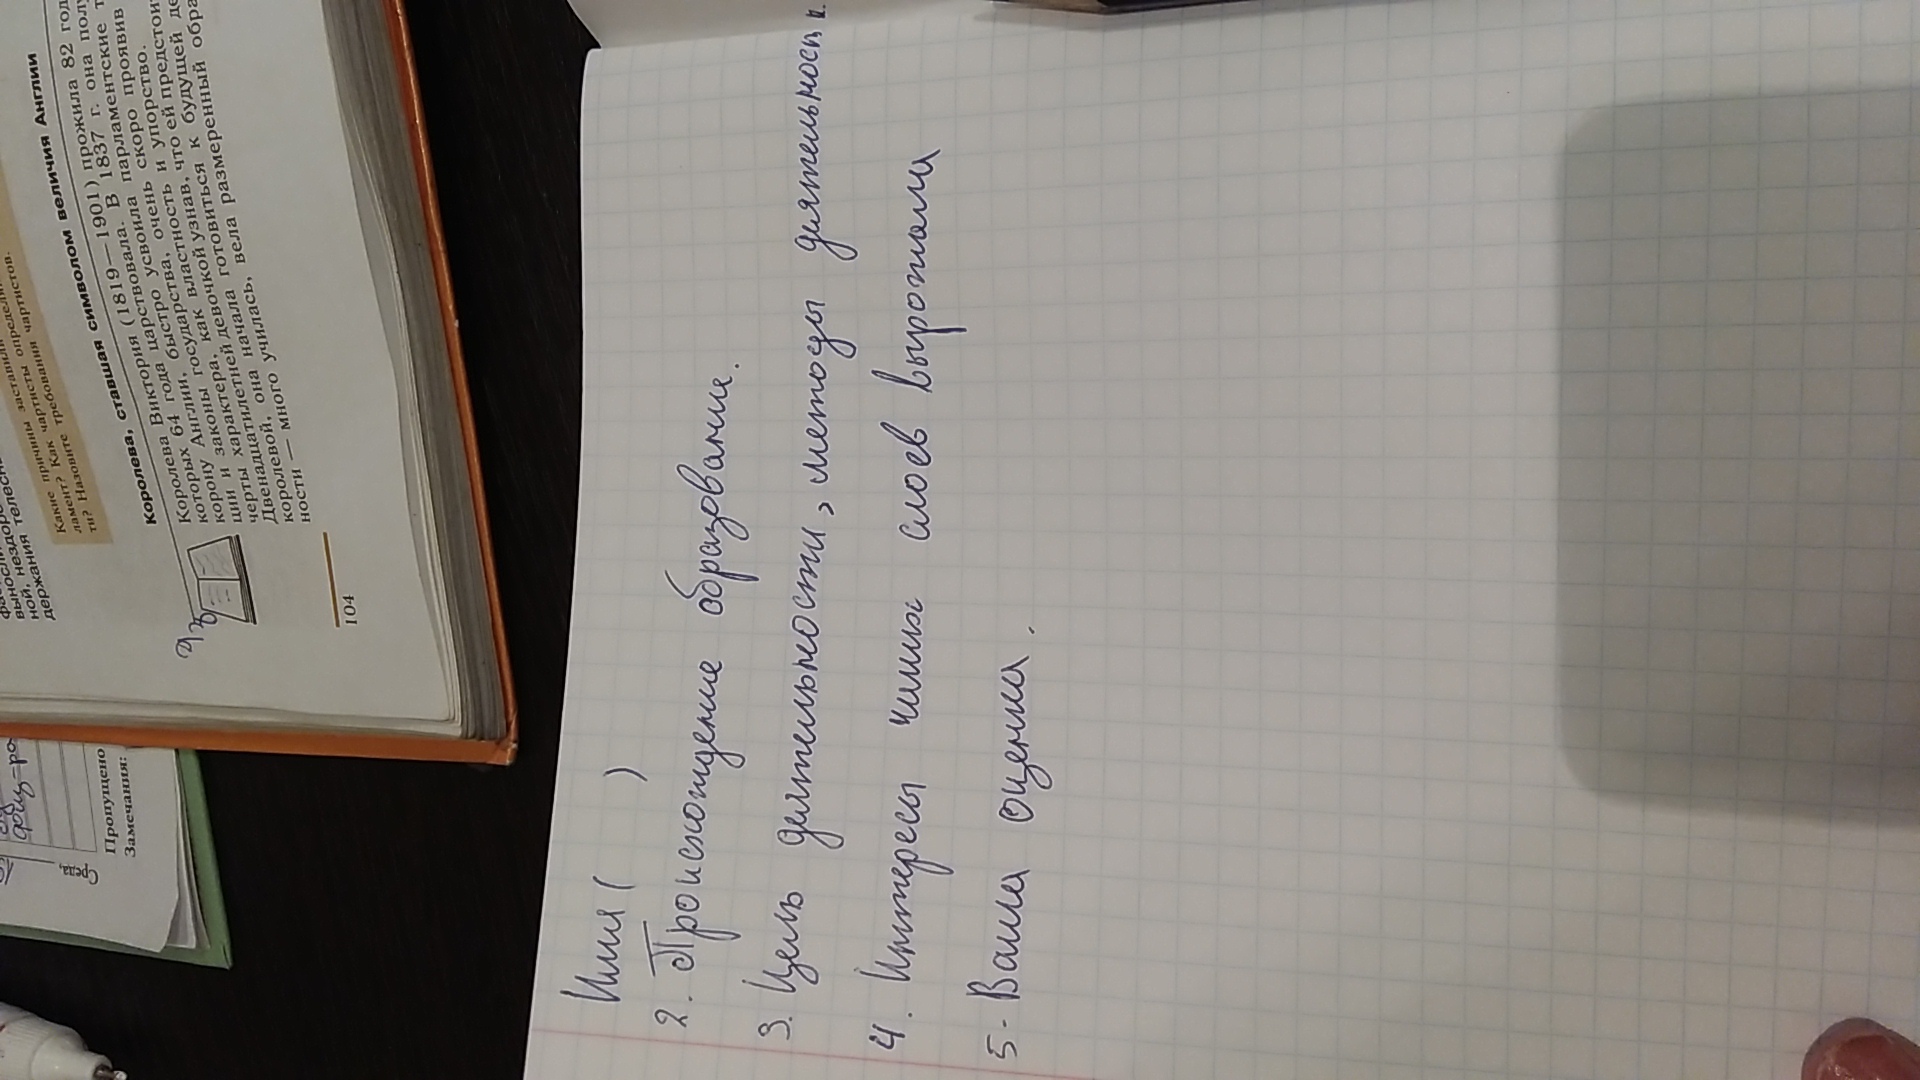 выносли
ной, нездоро
держания телесн
Какие причины заставили
ламент? Как чартисты определи
ти? Назовите требования чартистов.
Королева, ставшая символом величия Англии
Королева Виктория (1819—1901) прожила 82 год
которых 64 года царствовала. В 1837 г. она полу
корону Англии, быстро усвоила парламентские т
ции и законы государства, очень скоро проявив
черты характера, как властность и упорство.
Двенадцатилетней девочкой узнав, что ей предстои
королевой, она начала готовиться к будущей де
ности — много училась, вела размеренный обра
104
Среда,
Пропущено
Замечания:
Имя ( )
2. Происхождение образование.
3. Цель деятельности, методы деятельности.
4. Интересы чьих слоев выражали
5. Ваша оценка.